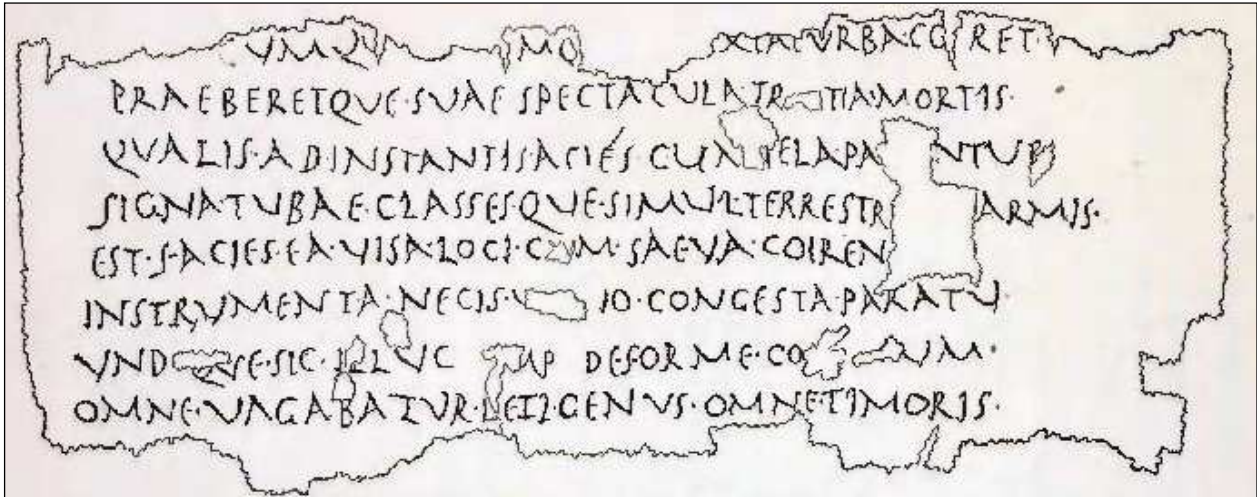 PRAEBERETQVE·SVAE SPECTACVLA·TR TIA·MORTIS·
QVALIS·AD·INSTANTIS·ACIES CVM TELA·PA NTVR
SIGNA·TVBAE·CLASSESQVE·SIMVL·TERRESTR ARMIS·
EST·S·ACIES·EA·VISA·LOCI·CVM·SAEVA·COIREN
INSTRVMENTA·NECIS·V IO·CONGESTA·PARATV·
VND QVE·SIC·ILLVC MP DEFORME·CO VM·
OMNE·VAGABATVR·LETI·GENVS·OMNE TIMORIS·